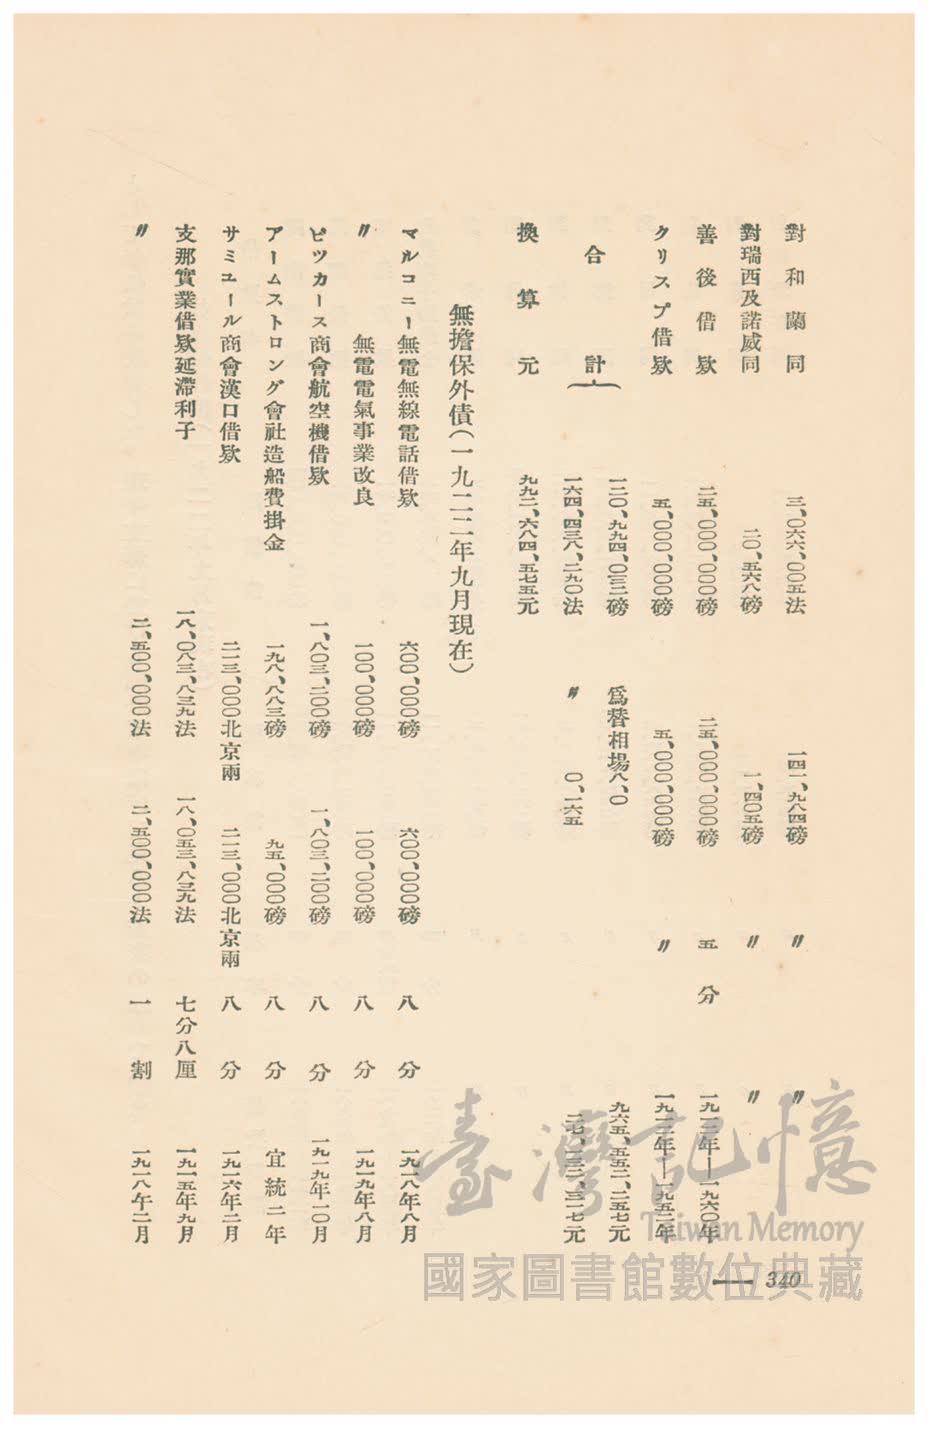 對和蘭同 三、〇六六、〇〇五法 一四一、九八四磅 〃 〃
對瑞西及諾威同 二〇、五六八磅 一、四〇五磅 〃 〃
善後借欵 二五、〇〇〇、〇〇〇磅 二五、〇〇〇、〇〇〇磅 五分 一九一三年—一九六〇年
クリスプ借欵 五、〇〇〇、〇〇〇磅 五、〇〇〇、〇〇〇磅 〃 一九一二年—一九五二年
合計 一二〇、九九四、〇三三磅 爲替相場八、〇 九六五、五五二、二五七元
一六四、四三八、二九〇法 〃 〇、一六五 二七、一三二、三一七元
換算元 九九二、六八四、五七五元
無擔保外債(一九二二年九月現在)
マルコニー無電無線電話借欵 六〇〇、〇〇〇磅 六〇〇、〇〇〇磅 八分 一九一八年八月
〃 無電電氣事業改良 一〇〇、〇〇〇磅 一〇〇、〇〇〇磅 八分 一九一九年八月
ビツカース商會航空機借欵 一、八〇三、二〇〇磅 一、八〇三、二〇〇磅 八分 一九一九年一〇月
アームストロング會社造船費掛金 一九八、八八三磅 九五、〇〇〇磅 八分 宜統二年
サミユール商會漢口借欵 二一三、〇〇〇北京兩 二一三、〇〇〇北京兩 八分 一九一六年二月
支那實業借欵延滯利子 一八、〇八三、八三九法 一八、〇五三、八三九法 七分八厘 一九一五年九月
〃 二、五〇〇、〇〇〇法 二、五〇〇、〇〇〇法 一割 一九一八午二月
340
臺灣記憶
Taiwan Memory
國家圖書館數位典藏